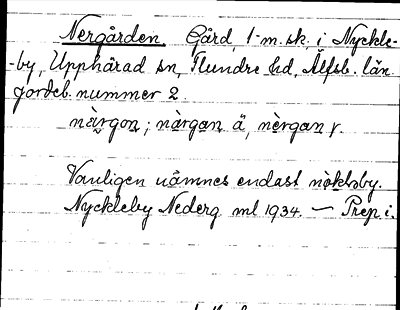 Nergården. Gård, 1-m.sk. i Nyckle-
-by, Upphärad sn, Flundre hd, Älfsb. län.
Jordeb. nummer 2.
nä̀rgon; nä̀rgan ä, nèrgan r.
Vanligen nämnes endast nøklǝby.
Nyckleby Nederg ml 1934. — Prep. i.